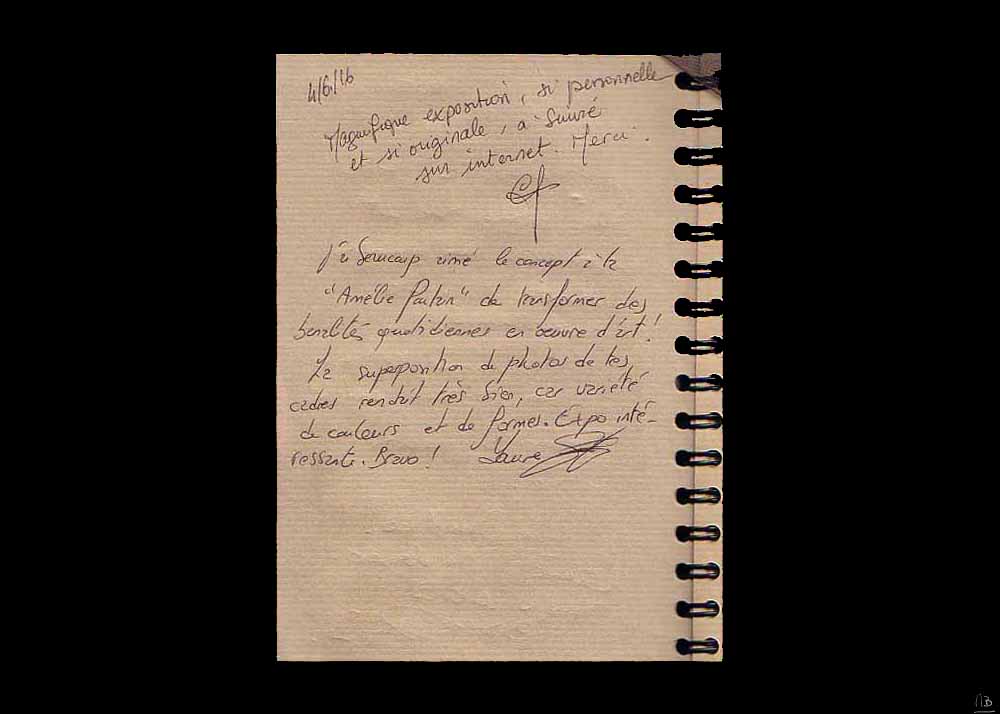 4/6/16
Magnifique exposition, si personnelle
et si originale, à suivre
sur internet. Merci.
J'ai beaucoup aimé le concept à la
"Amélie Poulain" de transformer des
banalités quotidiennes en oeuvre d'art!
La superposition de photos de tes
cadres rendait très bien, car variété
de couleurs et de formes. Expo inté-
ressante. Bravo! Laure